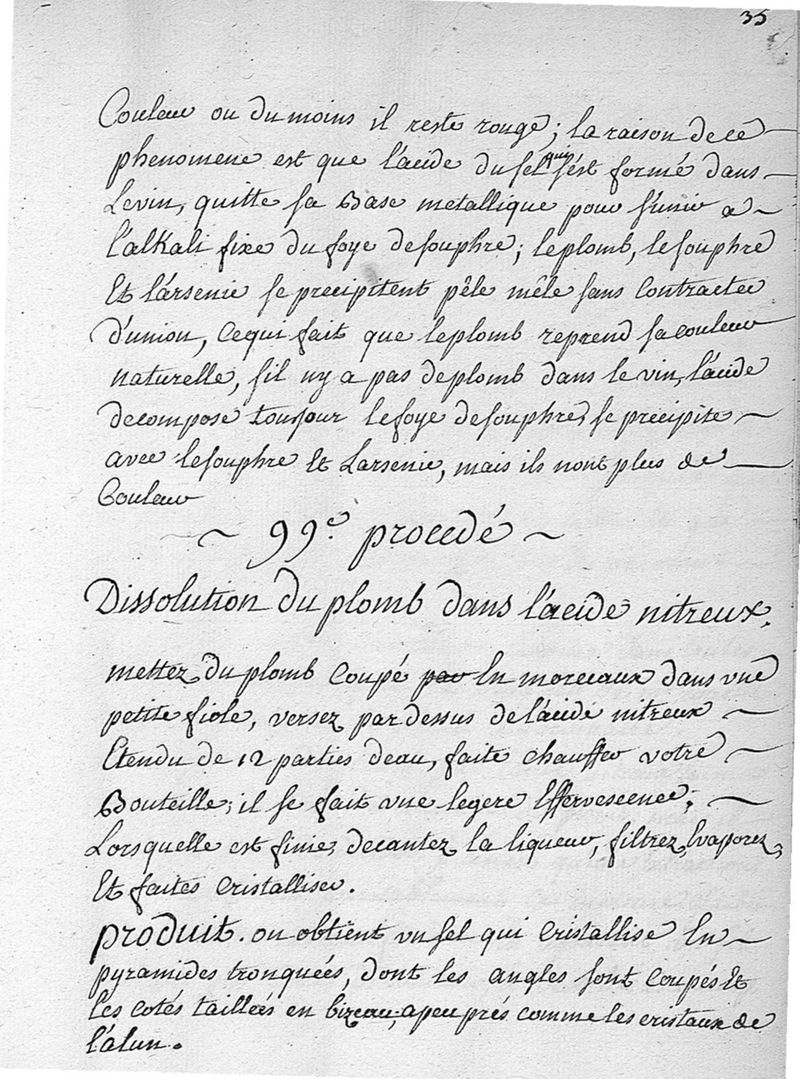 35
Couleur ou du moins il reste rouge; la raison de ce
phenomene est que l'acide du sel qui s'est formé dans
Levin, quitte sa Base metallique pour s'unir a
l'alKali fixe du foye desouphre; leplomb, lesouphre
Et l'arsenic se precipitent pêle mêle sans Contracter
d'union, cequi fait que leplomb reprend sa couleur
naturelle, s'il ny a pas deplomb dans le vin, l'acide
decompose toujour lefoye desouphre, se precipite
avec lesouphre Et Larsenic, mais ils nont plus de
Couleur
~ 99.e procedé ~
Dissolution du plomb dans l'acide nitreux.
mettez du plomb Coupé par En morceaux dans une
petite fiole, versez pardessus de l'acide nitreux
Etendu de 12 parties d'eau, faite chauffer votre
Bouteille; il se fait une legere Effervescence;
Lorsquelle est finie, decantez la liqueur, filtrez, Evaporez,
Et faites cristalliser.
produit. on obtient un sel qui Cristallise En
pyramides tronquées, dont les angles sont coupés Et
les cotés taillées en bizeau, apeu prés comme les cristaux de
l'alun.